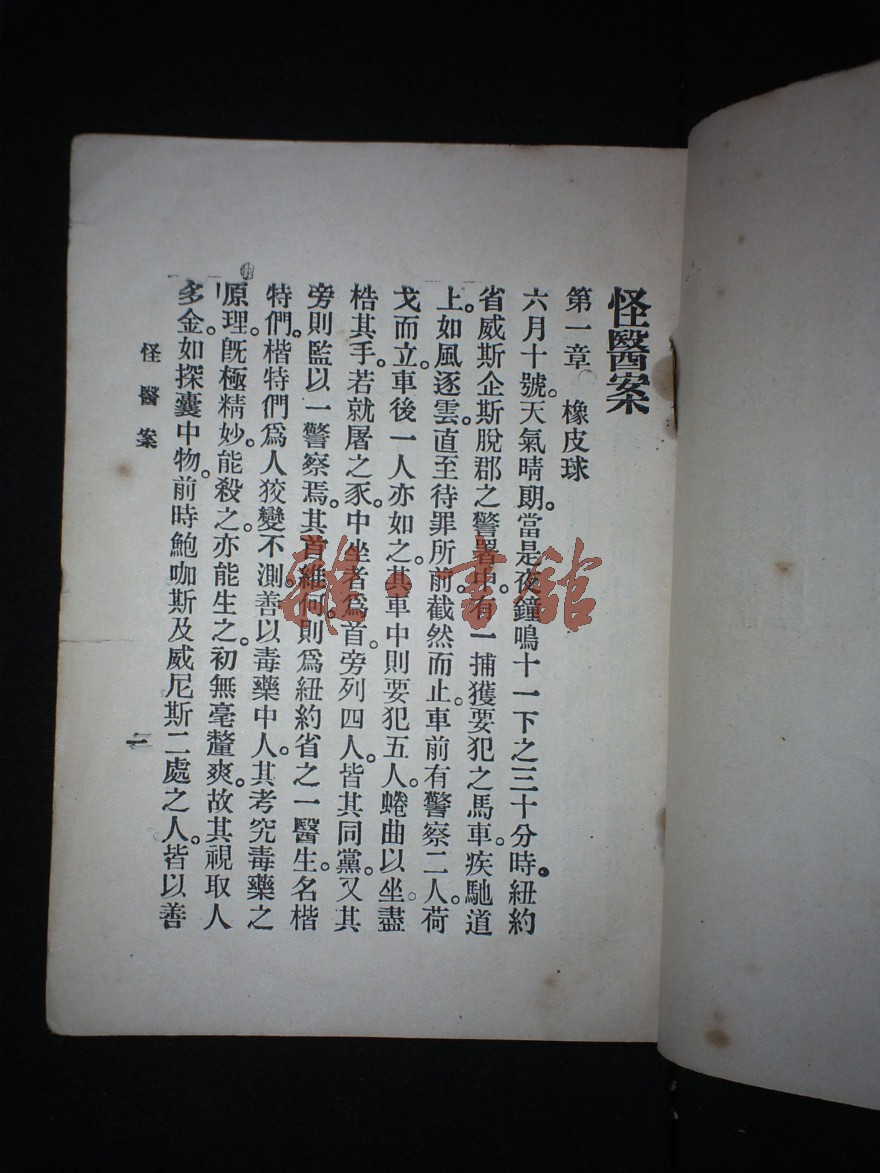 怪醫案
第一章　橡皮球
六月十號。天氣晴朗。當是夜鐘鳴十一下之三十分時。紐約
省威斯企斯脫郡之警署中。有一捕獲要犯之馬車。疾馳道
上。如風逐雲。直至待罪所前。截然而止。車前有警察二人。荷
戈而立。車後一人亦如之。其車中則要犯五人。蜷曲以坐。盡
梏其手。若就屠之豕。中坐者爲首。旁列四人。皆其同黨。又其
旁則監以一警察焉。其首維何。則爲紐約省之一醫生。名楷
特們。楷特們爲人狡變不測。善以毒藥中人。其考究毒藥之
原理。旣極精妙。能殺之。亦能生之。初無毫釐爽。故其視取人
多金。如探囊中物。前時鮑咖斯及威尼斯二處之人。皆以善
怪醫案
一
雜·書館